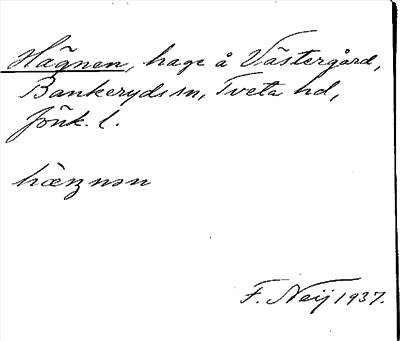 Hägnen, hage å Västergård,
Bankeryds sn, Tveta hd,
Jönk. l.
hæŋnən
F. Neij 1937.